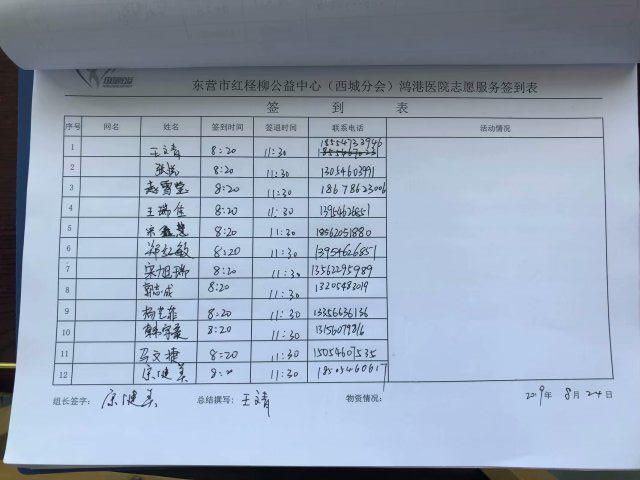 东营市红柽柳公益中心（西城分会）鸿港医院志愿服务签到表
签 到 表
序号 网名 姓名 签到时间 签退时间 联系电话 活动情况
1 王文青 8:20 11:30
2 8:20 11:30 13054603991
3 赵雪莹 8:20 11:30 18678623006
4 王瑞佳 8:20 11:30 13954626851
5 宋鑫慧 8:20 11:30 18562051880
6 郑红敏 8:20 11:30 13954626851
7 宋旭瑞 8:20 11:30 13562295989
8 郭志成 8:20 11:30 13205483019
9 杨艺菲 8:20 11:30 13356636136
10 8:20 11:30 13156079816
11 马文捷 8:20 11:30 15054607535
12 宗继美 11:30 18505460617
组长签字： 宗继美 总结撰写： 王文青 物资情况： 2019年 8月24日